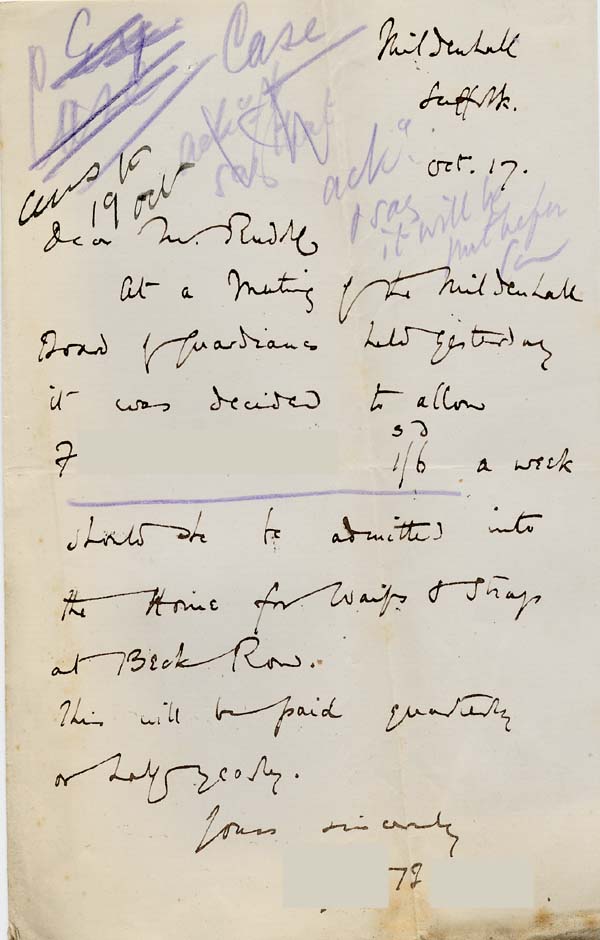 Case
Mildenhall
Suffolk.
Oct. 17.
ans to
19 Oct
ack^d
& say
it will be
put before
Com
Dear Mr. Rudolf
At a Meeting of the Mildenhall
Board of Guardians held yesterday
it was decided to allow
F
s d
1/6 a week
should she be admitted into
the Home for Waifs & Strays
at Beck Row.
This will be paid quarterly
or half yearly.
Yours sincerely